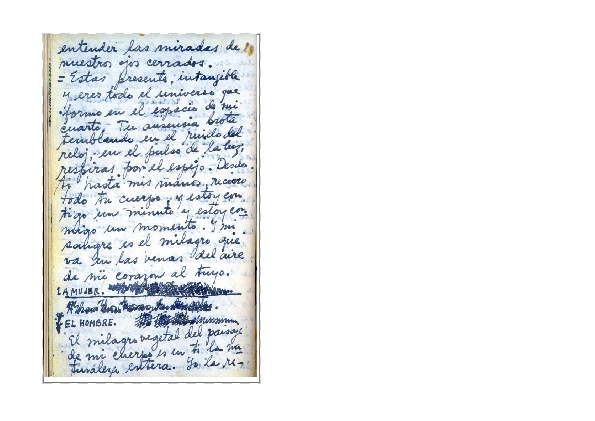 entender las miradas de
nuestros ojos cerrados.
= Estas presente, intangible
y eres todo el universo que
formo en el espacio de mi
cuarto. Tu ausencia brota
temblando en el ruido del
reloj, en el pulso de la luz;
respiras por el espejo. Desde
ti hasta mis manos, recorro
todo tu cuerpo, y estoy con
tigo un minuto y estoy con
migo un momento. Y mi
sangre es el milagro que
va en las venas del aire
de mi corazon al tuyo.
LA MUJER.
EL HOMBRE.
El milagro vegetal del paisaje
de mi cuerpo es en ti la na
turaleza entera. Yo la re-